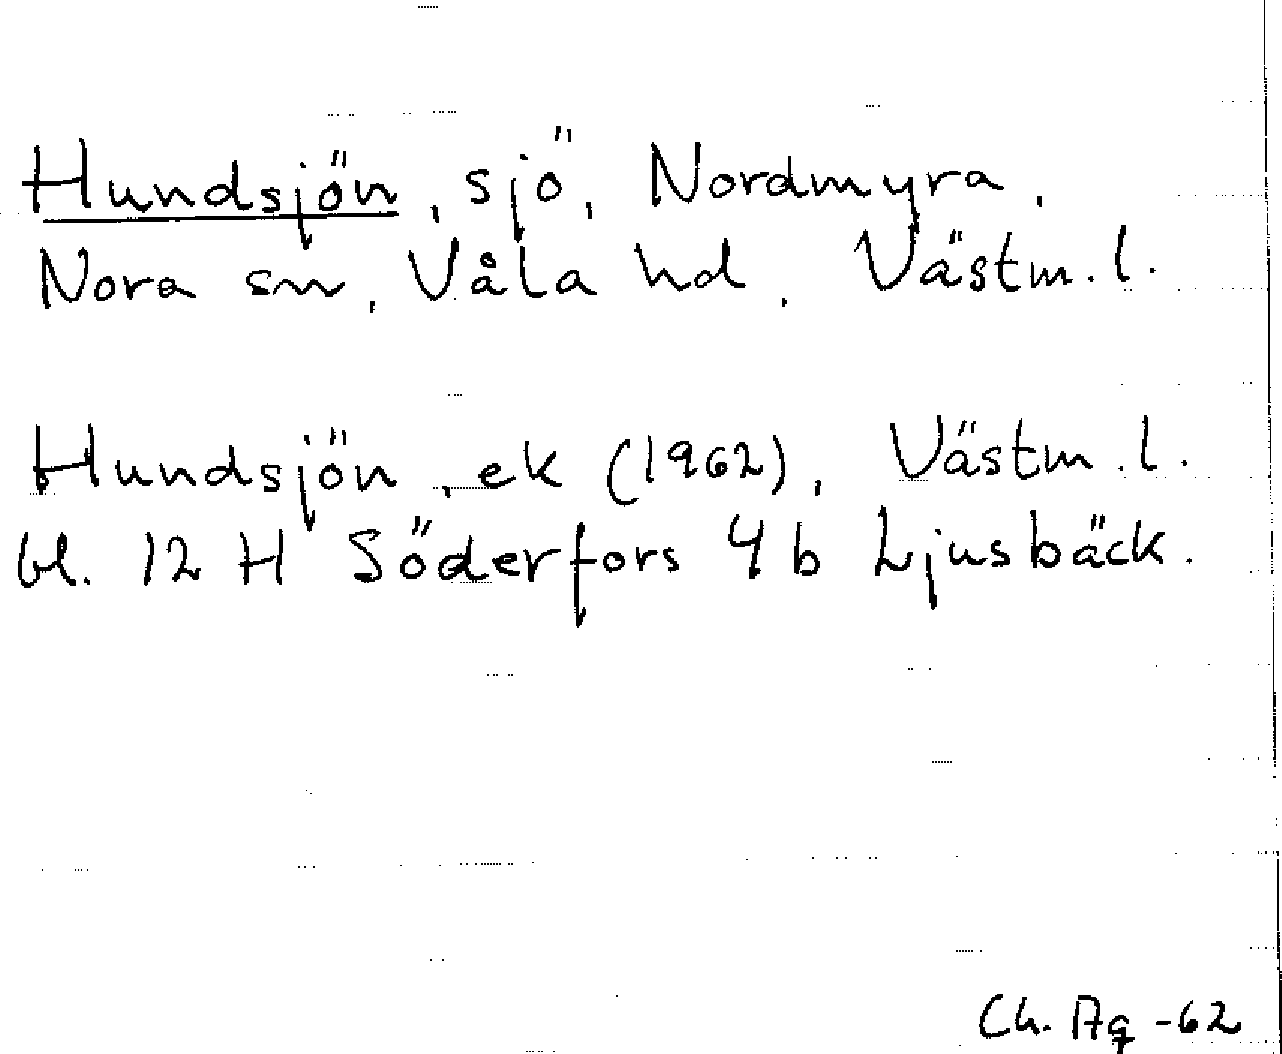 Hundsjön, sjö, Nordmyra,
Nora sn, Våla hd, Västm. l.
Hundsjön, ek (1962), Västm. l.
bl. 12 H Söderfors 4 b Ljusbäck.
Ch. Ag -62